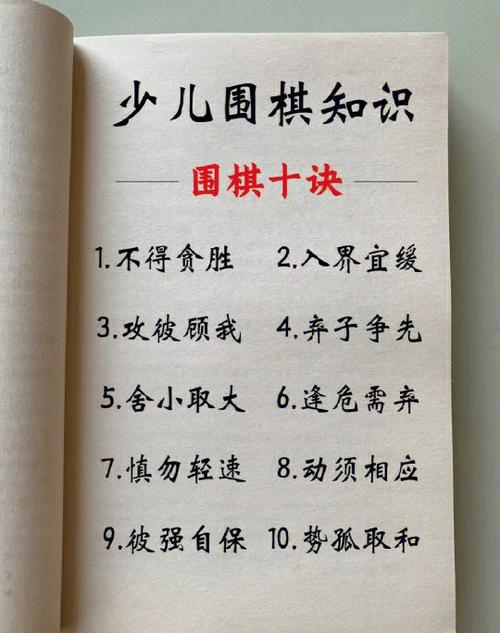 少儿围棋知识
围棋十诀
1.不得贪胜 2.入界宜缓
3.攻彼顾我 4.弃子争先
5.舍小取大 6.逢危需弃
7.慎勿轻速 8.动须相应
9.彼强自保 10.势孤取和